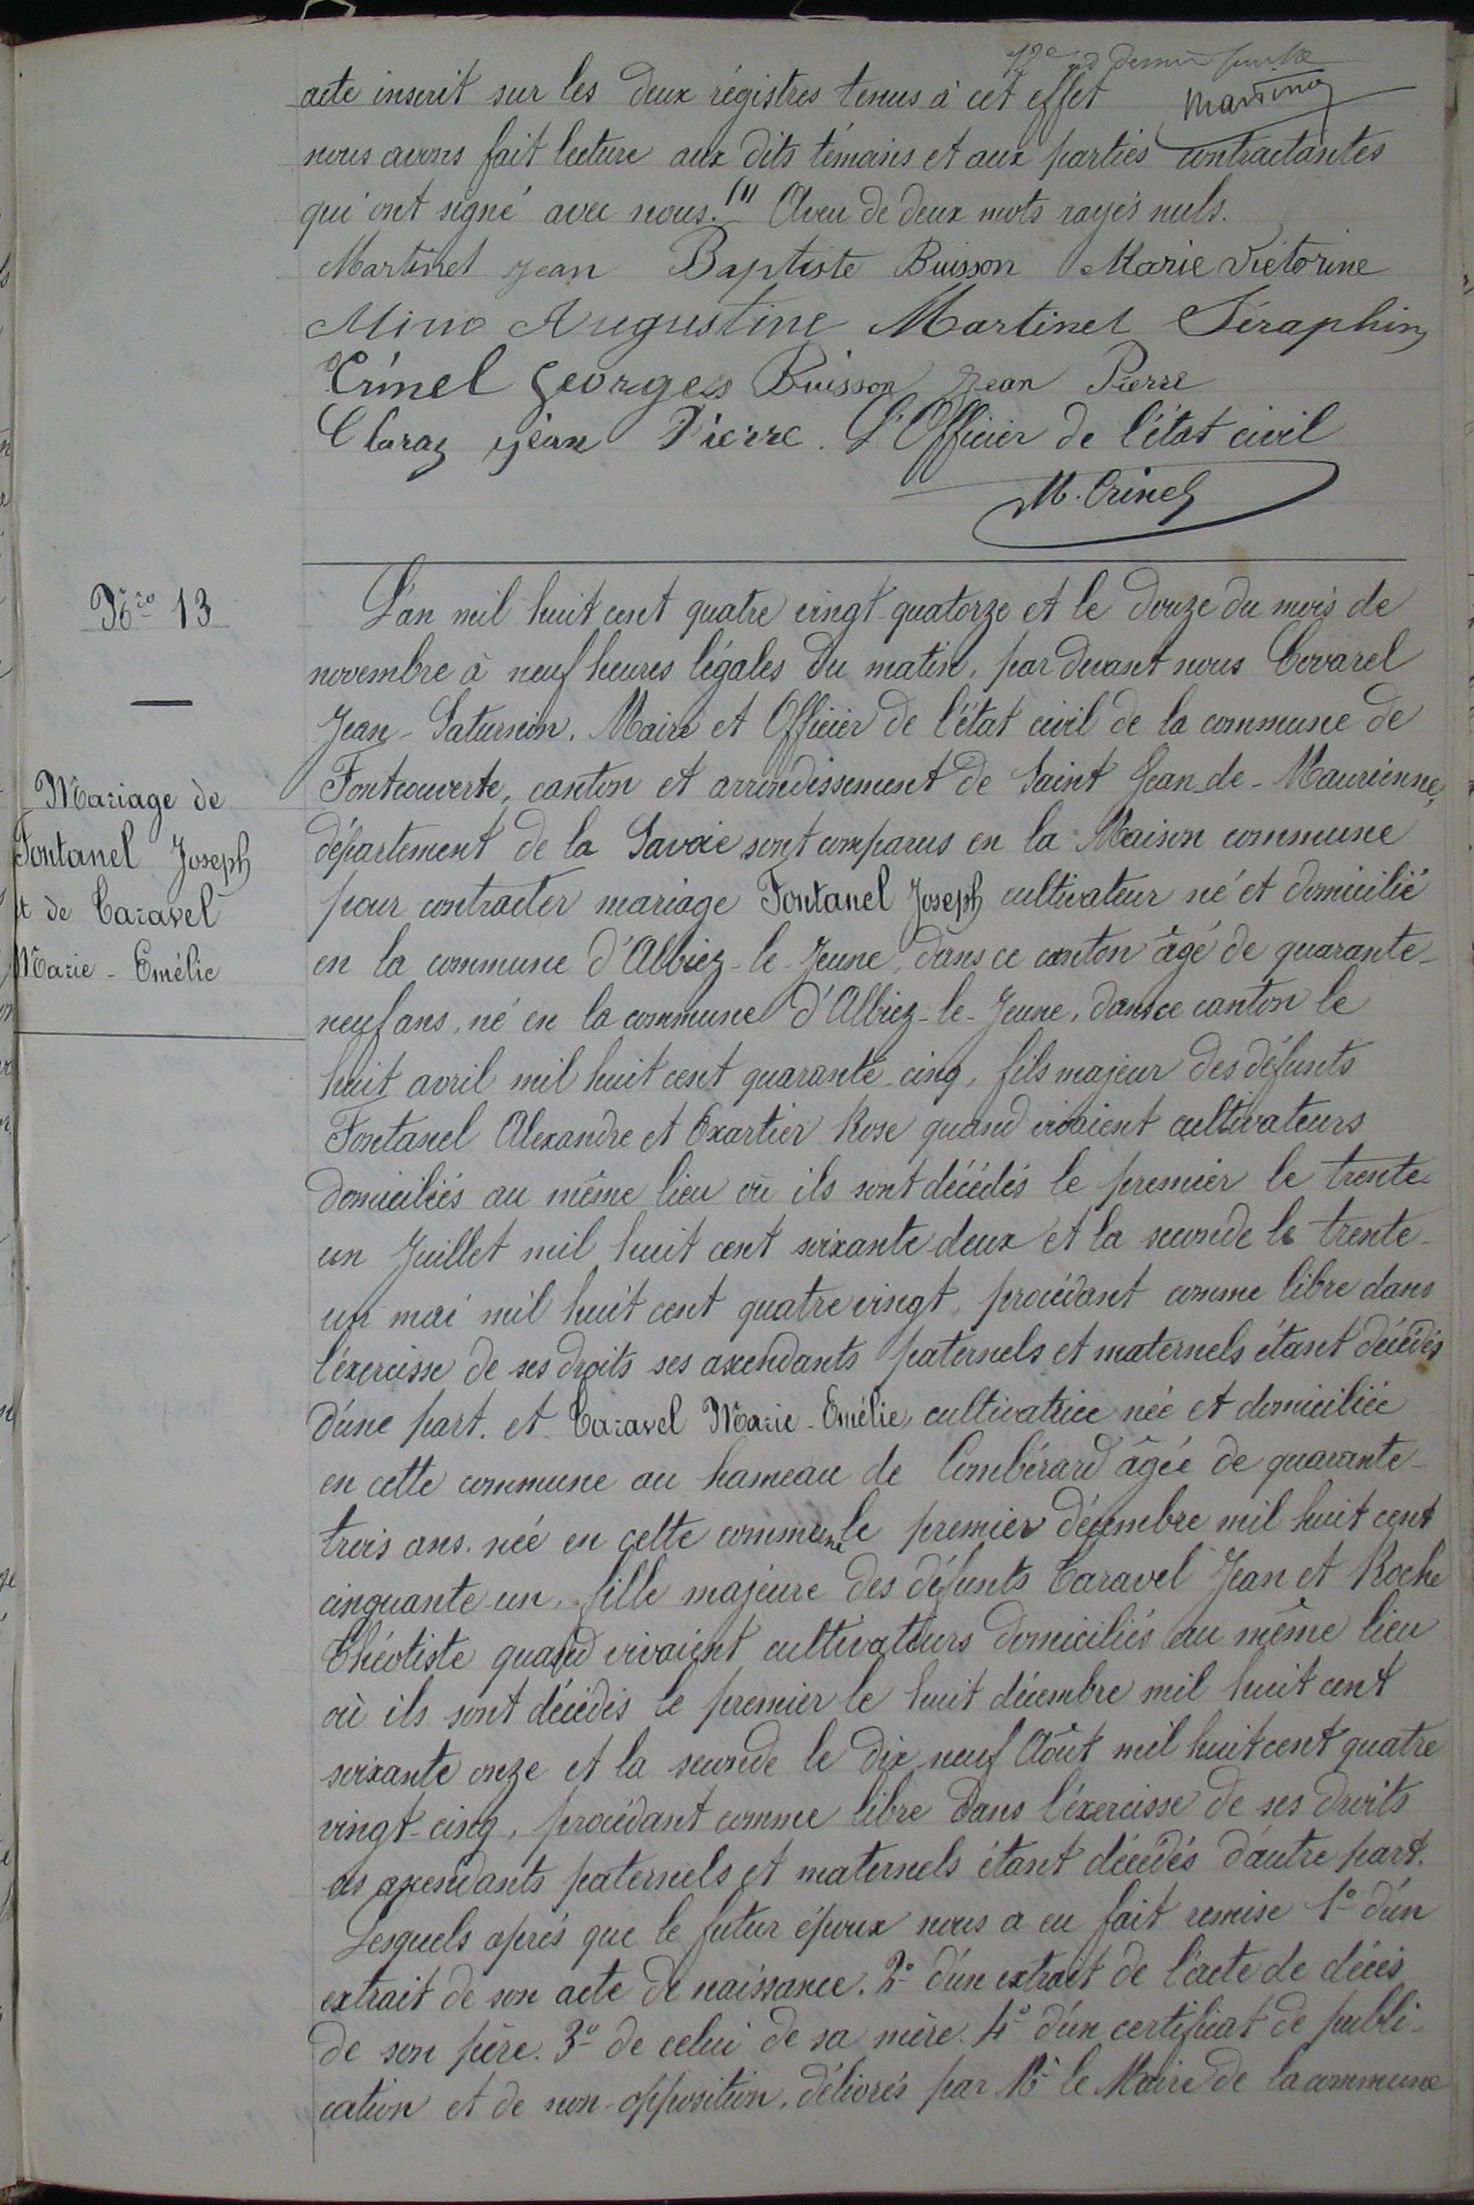 12e et dernier feuillet
acte inscrit sur les deux régistres tenus à cet effet
nous avons fait lecture aux dits témoins et aux parties contractantes
qui ont signé avec nous. (1) Aveu de deux mots rayés nuls.
Martinet Jean Baptiste Buisson Marie Victorine
Augustine Martinet Séraphin
Crinel Georges Buisson Jean Pierre
Claraz jean Pierre. L'Officier de l'état civil
M. Crinel
Nro 13
Mariage de
Fontanel Joseph
et de Caravel
Marie-Emélie
L'an mil huit cent quatre vingt-quatorze et le douze du mois de
novembre à neuf heures légales du matin, par devant nous Covarel
Jean-Saturnin, Maire et Officier de l'état civil de la commune de
Fontcouverte, canton et arrondissement de Saint Jean-de-Maurienne,
département de la Savoie sont comparus en la Maison commune
pour contracter mariage Fontanel Joseph cultivateur né et domicilié
en la commune d'Albiez-le-Jeune, dans ce canton âgé de quarante-
neuf ans, né en la commune d'Albiez-le-Jeune, dans ce canton le
huit avril mil huit cent quarante-cinq, fils majeur des défunts
Fontanel Alexandre et Exartier Rose quand vivaient cultivateurs
domiciliés au même lieu où ils sont décédés le premier le trente-
un Juillet mil huit cent soixante deux et la seconde le trente-
un mai mil huit cent quatre vingt, procédant comme libre dans
l'éxercisse de ses droits ses ascendants paternels et maternels étant décédés
d'une part. et Caravel Marie-Emélie, cultivatrice née et domiciliée
en cette commune au hameau de Combérard âgée de quarante-
trois ans. née en cette commune le premier décembre mil huit cent
cinquante-un, fille majeure des défunts Caravel Jean et Roche
Théotiste quand vivaient cultivateurs domiciliés au même lieu
où ils sont décédés le premier le huit décembre mil huit cent
soixante onze et la seconde le dix neuf Août mil huit cent quatre
vingt-cinq, procédant comme libre dans l'éxercisse de ses droits
ses ascendants paternels et maternels étant décédés d'autre part.
Lesquels après que le futur époux nous a eu fait remise 1° d'un
extrait de son acte de naissance. 2° d'un extrait de l'acte de décès
de son père. 3° de celui de sa mère. 4° d'un certificat de publi-
cation et de non-opposition, délivrés par Mr le Maire de la commune